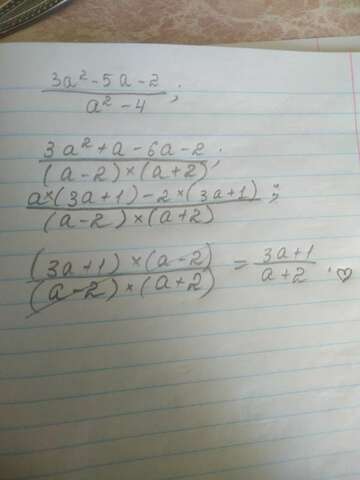 3a² - 5a - 2 / a² - 4 ;
3a² + a - 6a - 2 / (a - 2) × (a + 2) ;
a × (3a + 1) - 2 × (3a + 1) / (a - 2) × (a + 2) ;
(3a + 1) × (a - 2) / (a - 2) × (a + 2) = 3a + 1 / a + 2 . ♡